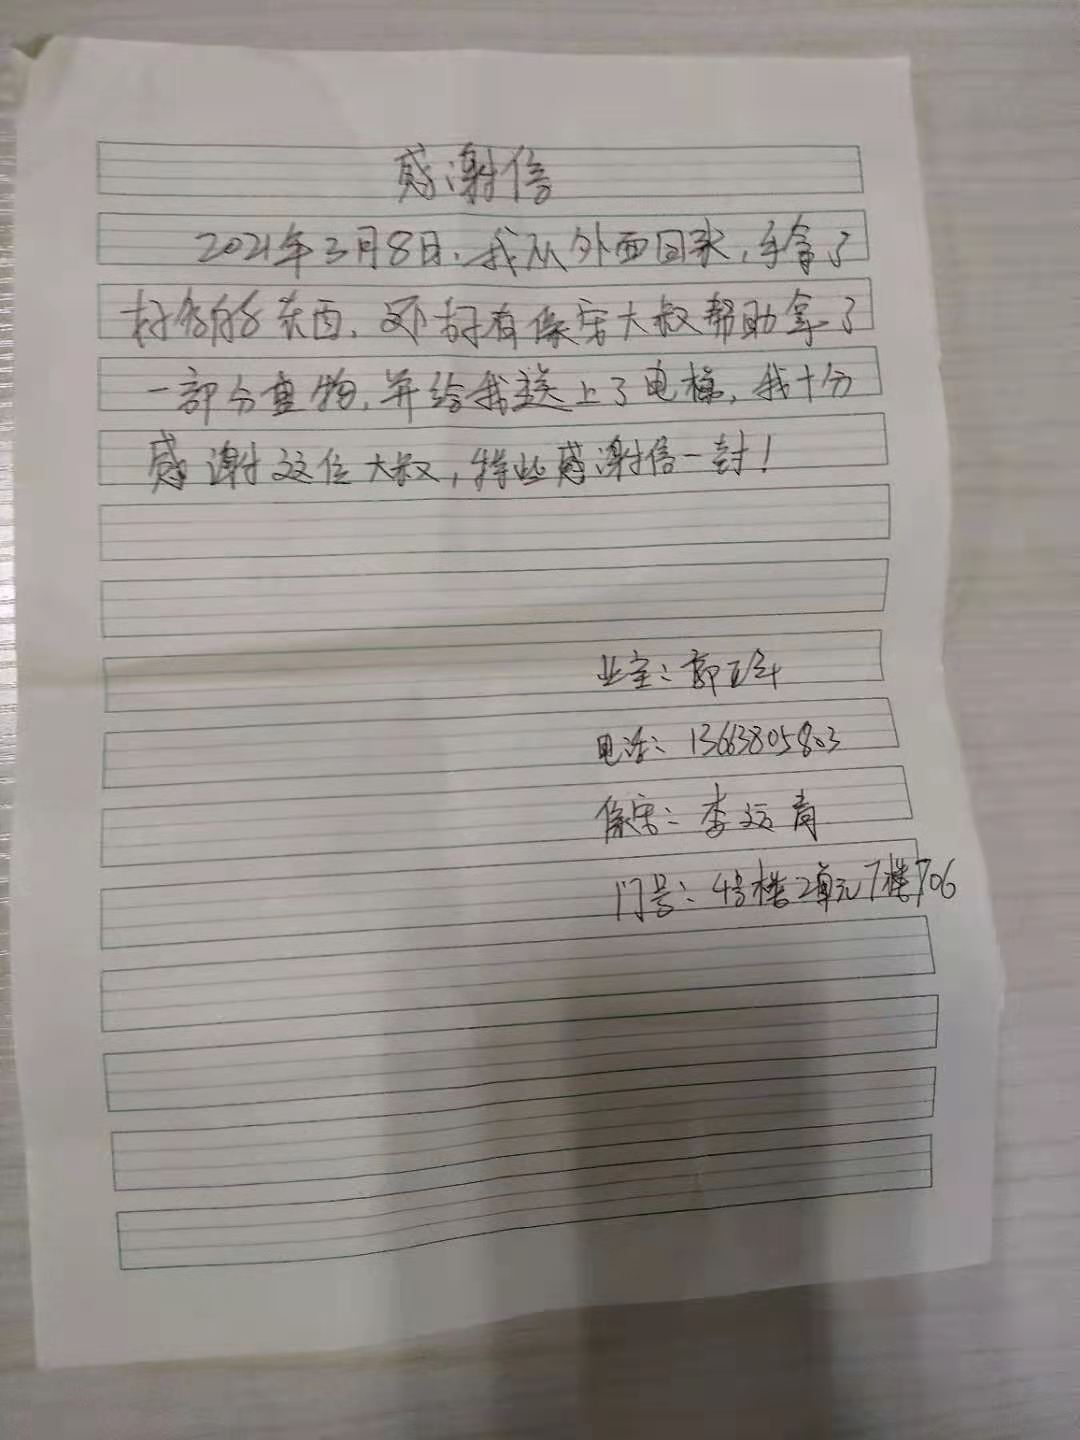 感谢信
2021年3月8日.我从外面回来,手拿了
好多的东西,正好有保安大叔帮助拿了
一部分重物,并给我送上了电梯,我十分
感谢这位大叔,特此感谢信一封!
业主:郭
电话:13663805803
保安:李
门号:4号楼2单元7楼706